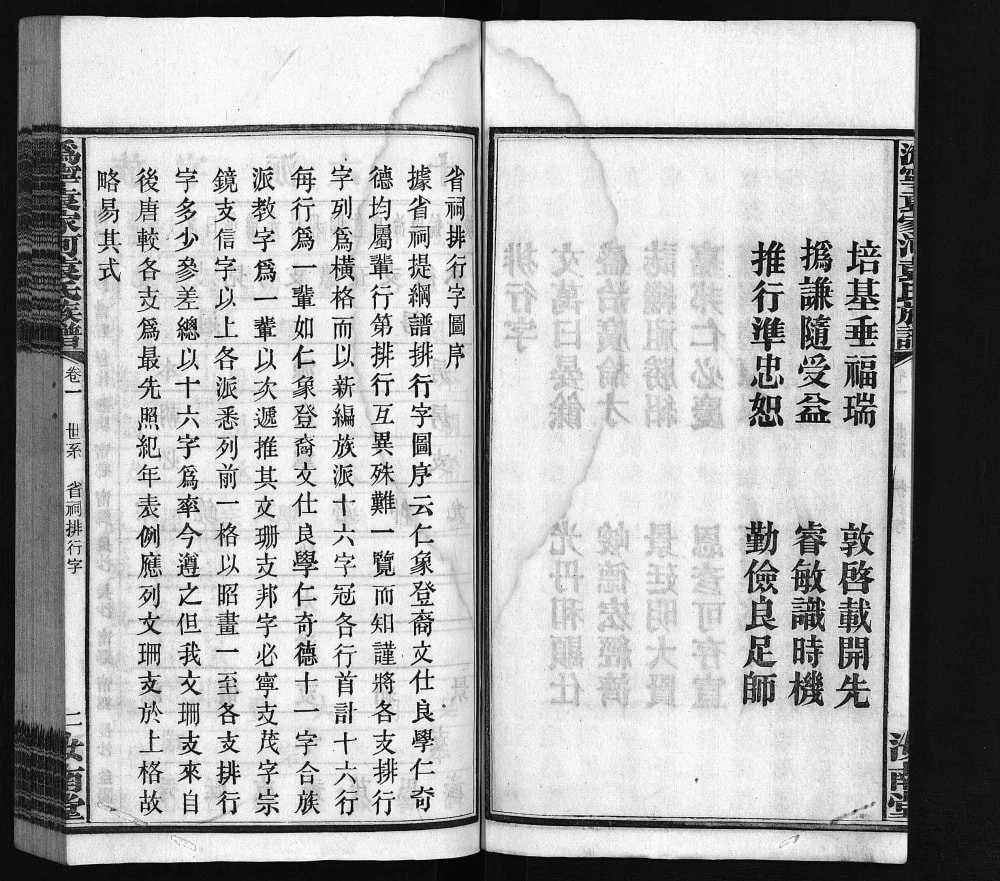 培基垂福瑞　敦啓載開先
撝謙隨受益　睿敏識時機
推行準忠恕　勤儉良足師
省祠排行字圖序
據省祠提綱譜排行字圖序云仁象登裔文仕良學仁奇
德均屬輩行第排行互異殊難一覽而知謹將各支排行
字列爲橫格而以新編族派十六字冠各行首計十六行
每行爲一輩如仁象登裔文仕良學仁奇德十一字合族
派教字爲一輩以次遞推其文珊支邦字必寧支茂字宗
鏡支信字以上各派悉列前一格以昭畫一至各支排行
字多少參差總以十六字爲率今遵之但我文珊支來自
後唐較各支爲最先照紀年表例應列文珊支於上格故
略易其式
爲寧袁家河袁氏族譜
卷一
世系
省祠排行字
汝南堂